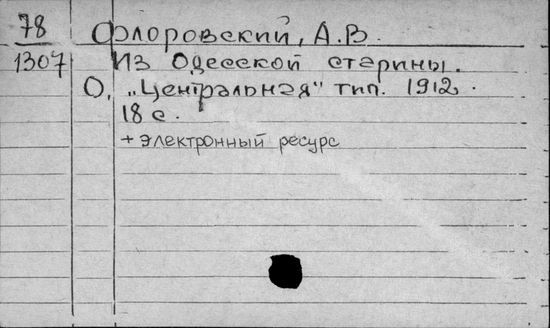 78 Флоровский, А.В.
1307 Из Одесской старины.
О, „Центральная" тип. 1912.
18 с.
+ электронный ресурс